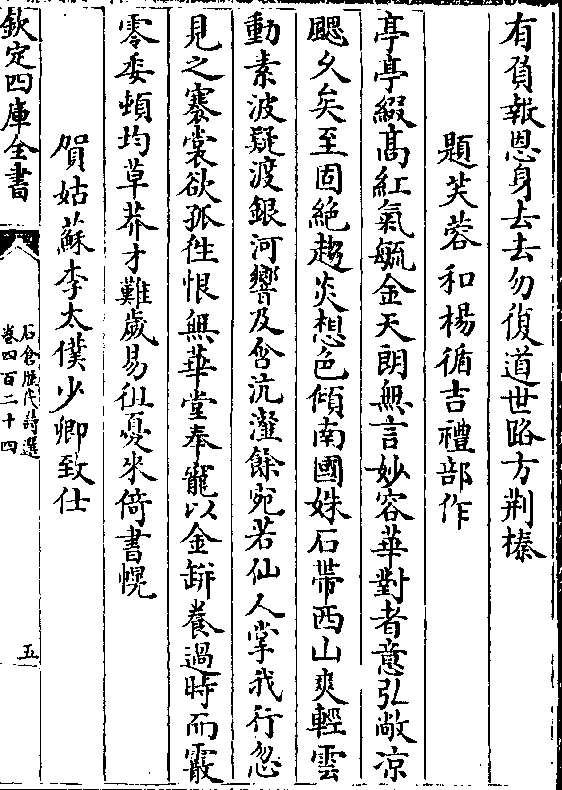 有負報恩身去去勿復道世路方荆榛
題芙蓉和楊循吉禮部作
亭亭綴髙紅氣毓金天朗無言妙容華對者意弘敞凉
颸久矣至固絶趨炎想色傾南國姝石帶西山爽輕雲
動素波疑渡銀河響及含沆瀣餘宛若仙人掌我行忽
見之褰裳欲孤徃恨無華堂奉寵以金缾養過時而霰
零委頓均草莽才難歲易徂憂来倚書幌
賀姑蘇李太僕少卿致仕
欽定四庫全書
石倉歴代詩選
卷四百二十四
五